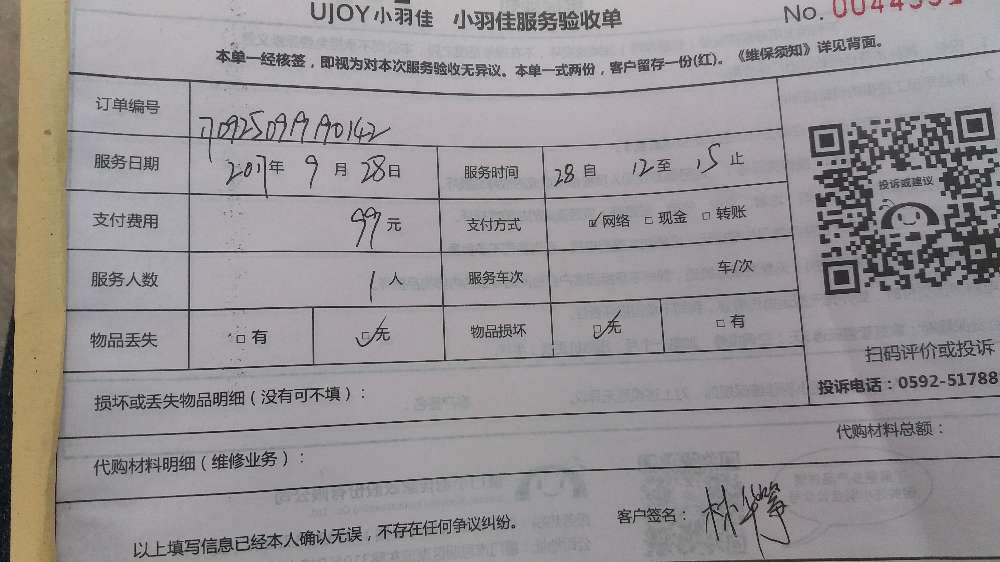 UJOY小羽佳 小羽佳服务验收单
No.
本单一经核签，即视为对本次服务验收无异议。本单一式两份，客户留存一份(红)。《维保须知》详见背面。
订单编号
服务日期 2017年 9 月 28日 服务时间 28 自 12至 15 止
支付费用 99元 支付方式 ☑网络 □现金 □转账
服务人数 1人 服务车次 车/次
物品丢失 □有 ☑无 物品损坏 ☑无 □有
损坏或丢失物品明细（没有可不填）：
代购材料明细（维修业务）：
代购材料总额：
以上填写信息已经本人确认无误，不存在任何争议纠纷。
客户签名：
投诉或建议
扫码评价或投诉
投诉电话：0592-51788